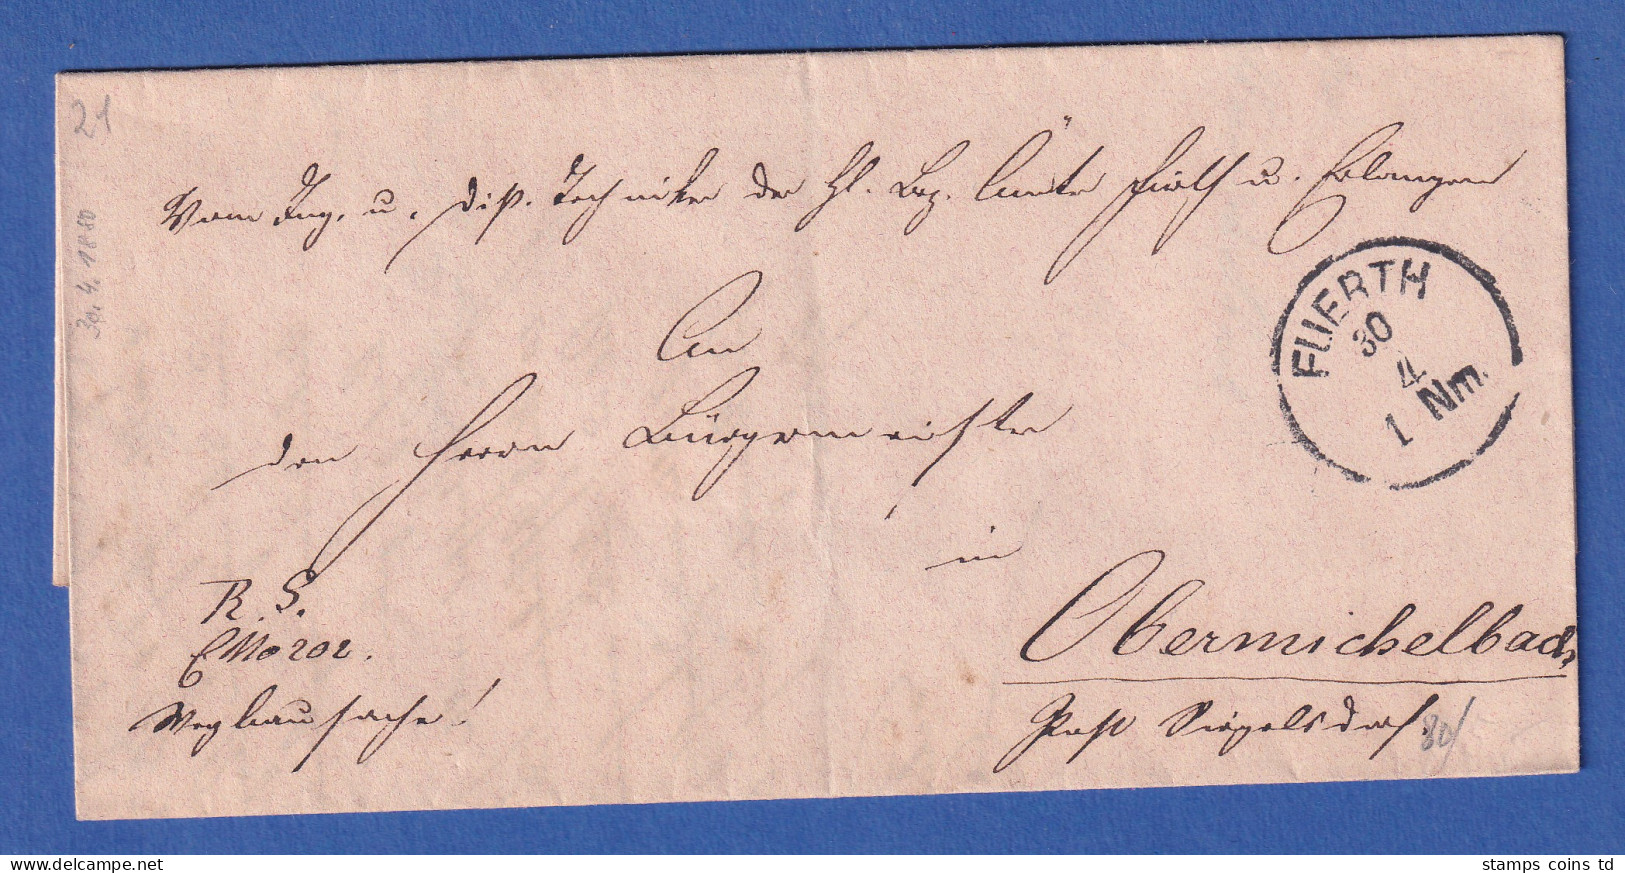 21
30.4.1880
Vom Ing. u. Dist. Techniker der Kgl. Bez. Ämter Fürth u. Erlangen
FUERTH
30
4
1 Nm.
An
den Herrn Bürgermeister
in
R. S.
E No 202.
Obermichelbach
Wegbausache!
Post Siegelsdorf.
80/
stamps coins td